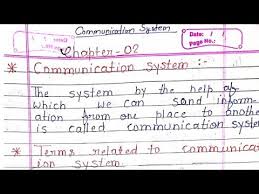 Communication System
Date: / /
Page No.:
Chapter-02
* Communication System :-
The system by the help of
which we can sand inform-
ation from one place to another
is called communication system
* Terms related to communicat-
ion system.